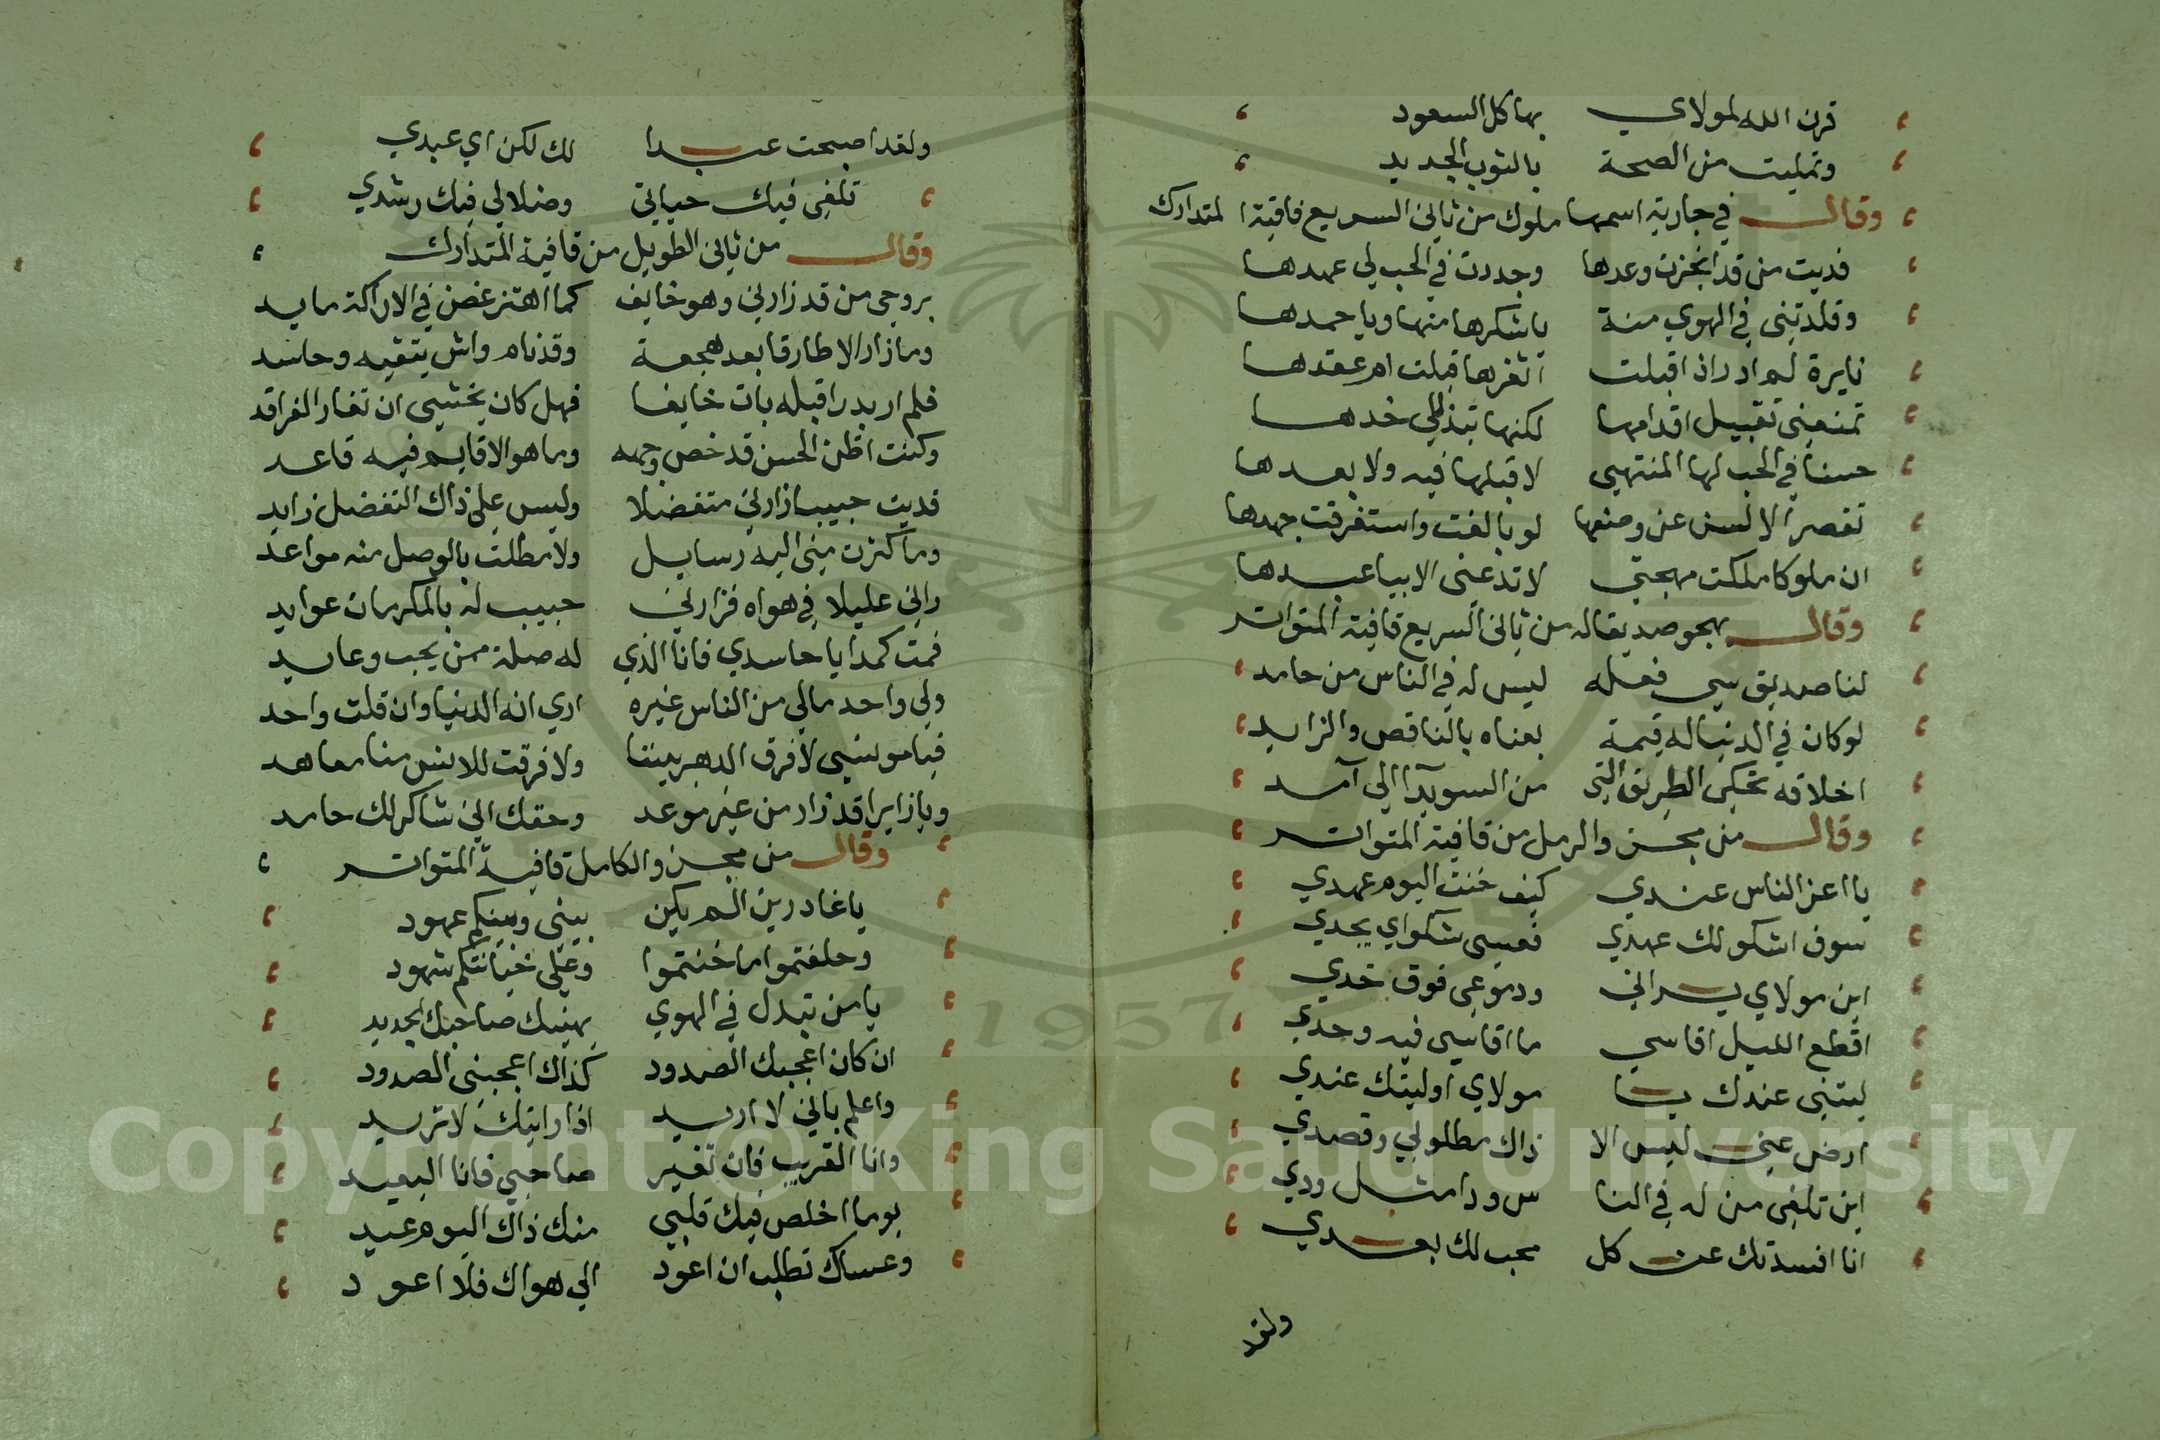 قرن الله لمولاي بها كل السعود
وتمليت من الصحة بالثوب الجديد
وقال في جارية اسمها ملوك من ثاني السريع قافية المتدارك
فديت من قد انجزت وعدها وجددت في الحب لي عهدها
وقلدتني في الهوي منة يا شكرها منها ويا حمدها
زايرة لم ادر اذ اقبلت اثغرها قبلت ام عقدها
تمنعني تقبيل اقدامها لكنها تبذل لي خدها
حسنا في الحب لها المنتهي لا قبلها فيه ولا بعدها
تقصر الالسن عن وصفها لو بالغت واستغرقت جهدها
ان ملوكا ملكت مهجتي لا تدعني الا بيا عبدها
وقال يهجو صديقا له من ثاني السريع قافية المتواتر
لنا صديق سي فعله ليس له في الناس من حامد
لو كان في الدنيا له قيمة بعناه بالناقص والزايد
اخلاقه تحكي الطريق التي من السويدا الي آمد
وقال من مجزو الرمل من قافية المتواتر
يا اعز الناس عندي كيف خنت اليوم عهدي
سوف اشكو لك عهدي فعسي شكواي يجدي
اين مولاي يراني ودموعي فوق خدي
اقطع الليل اقاسي ما اقاسي فيه وحدي
ليتني عندك يا مولاي او ليتك عندي
ارض عني ليس الا ذاك مطلوبي وقصدي
اين تلقي من له في النا س ودا مثل ودي
انا افسدتك عن كل محب لك بعدي
ولقد
ولقد اصبحت عبدا لك لكن اي عبدي
تلفي فيك حياتي وضلالي فيك رشدي
وقال من ثاني الطويل من قافية المتدارك
بروحي من قد زارني وهو خايف كما اهتز غصن في الاراكة مايد
وما زار الا طارقا بعد هجعة وقد نام واش يتقيه وحاسد
فلم ار بدرا قبله بات خايفا فهل كان يخشي ان تغار الفراقد
وكنت اظن الحسن قد خص وجهه وما هو الا قايم فيه قاعد
فديت حبيبا زارني متفضلا وليس علي ذاك التفضل زايد
وما كثرت مني اليه رسايل ولا مطلت بالوصل منه مواعد
راني عليلا في هواه فزارني حبيب له بالمكرمات عوايد
فمت كمدا يا حاسدي فانا الذي له صلة ممن يحب وعايد
ولي واحد مالي من الناس غيره اري انه الدنيا وان قلت واحد
فيا مونسي لا فرق الدهر بيننا ولا فرقت للانس منا معاهد
ويا زايرا قد زار من غير موعد وحقك اني شاكر لك حامد
وقال من مجزو الكامل قافية المتواتر
يا غادرين الم يكن بيني وبينكم عهود
وحلفتموا ما خنتموا وعلي خيانتكم شهود
يا من تبدل في الهوي يهنيك صاحبك الجديد
ان كان اعجبك الصدود كذاك اعجبني الصدود
واعلم باني لا اريد اذا رايتك لا تريد
وانا القريب فان تغير صاحبي فانا البعيد
يوما اخلص فيك قلبي منك ذاك اليوم عيد
وعساك تطلب ان اعود الي هواك فلا اعود
1957
Copyright © King Saud University